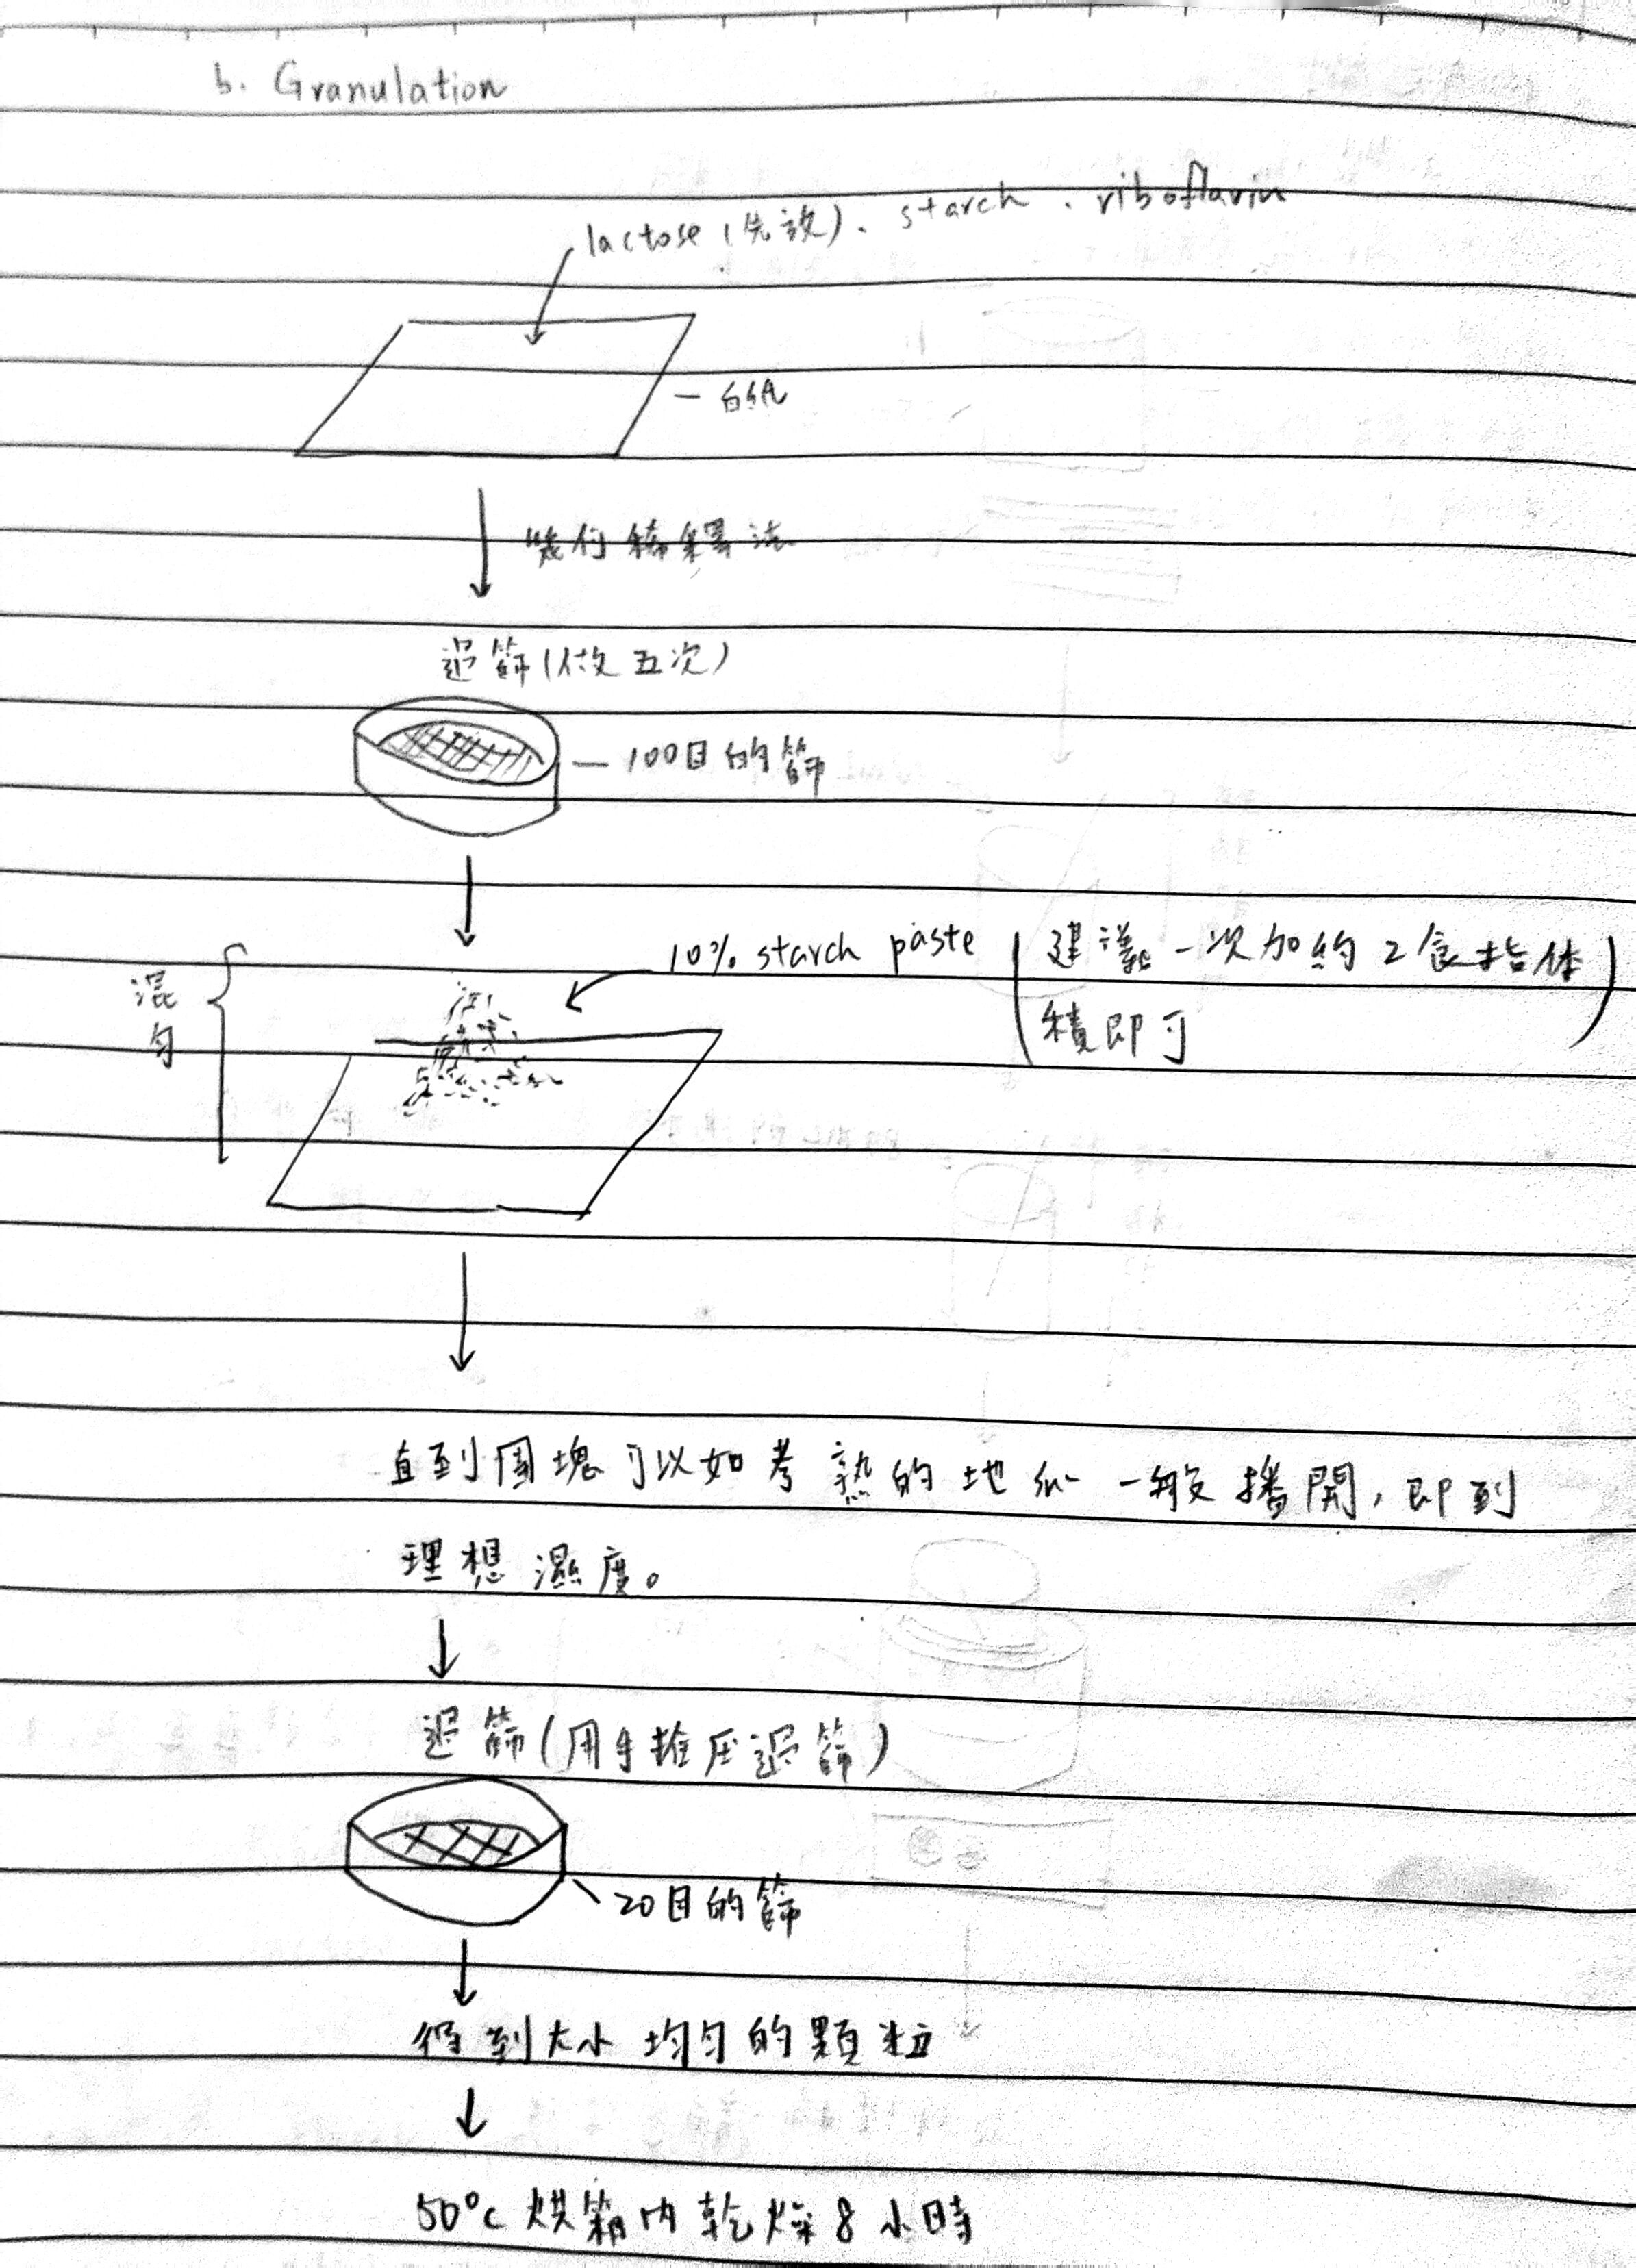 b. Granulation
lactose (先放)、starch、riboflavin
白紙
幾何稀釋法
過篩(做五次)
100目的篩
10% starch paste (建議一次加約2食指体
積即可)
混
勻
直到團塊可以如考熟的地瓜一般撥開,即到
理想濕度。
過篩(用手推压過篩)
20目的篩
得到大小均勻的顆粒
50°C 烘箱內乾燥8小時